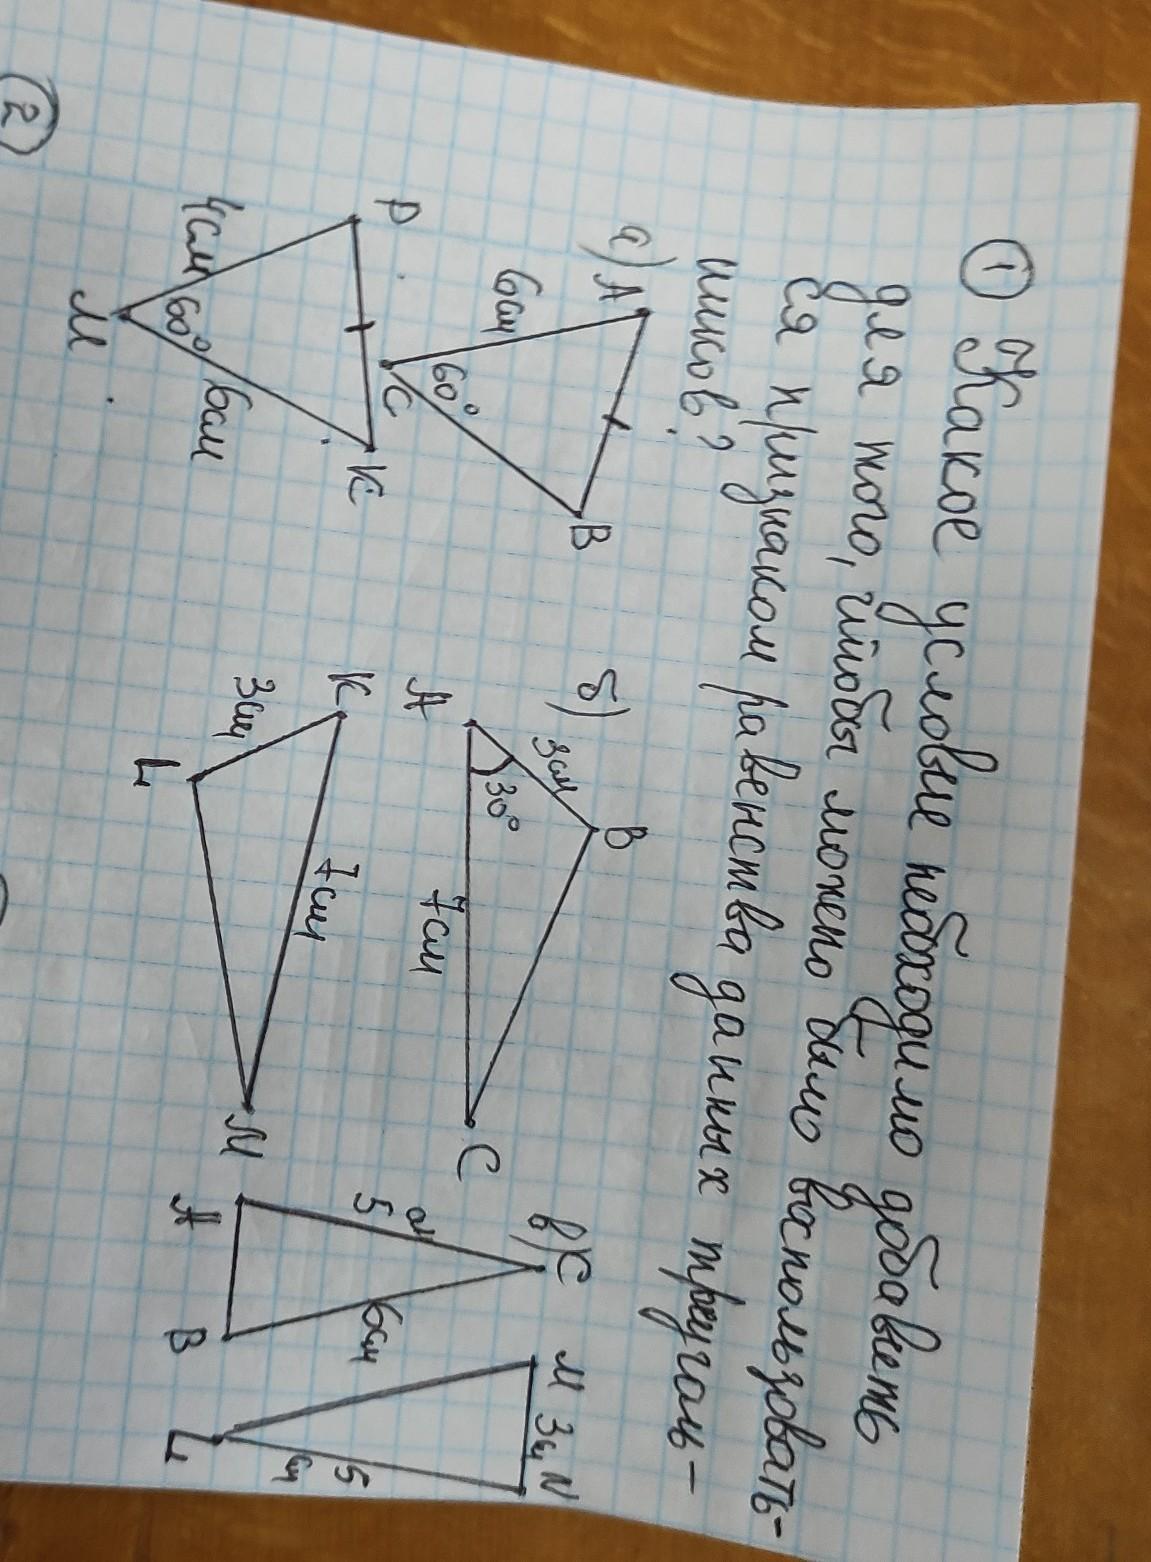 ① Какое условие необходимо добавить
для того, чтобы можно было воспользовать-
ся признаком равенства данных треуголь-
ников?
а) A B C 6см 60°
P K M 4см 60° 6см
б) A B C 3см 30° 7см
K L M 3см 7см
в) C A B 5см 6см
M N L 3см 5см
②